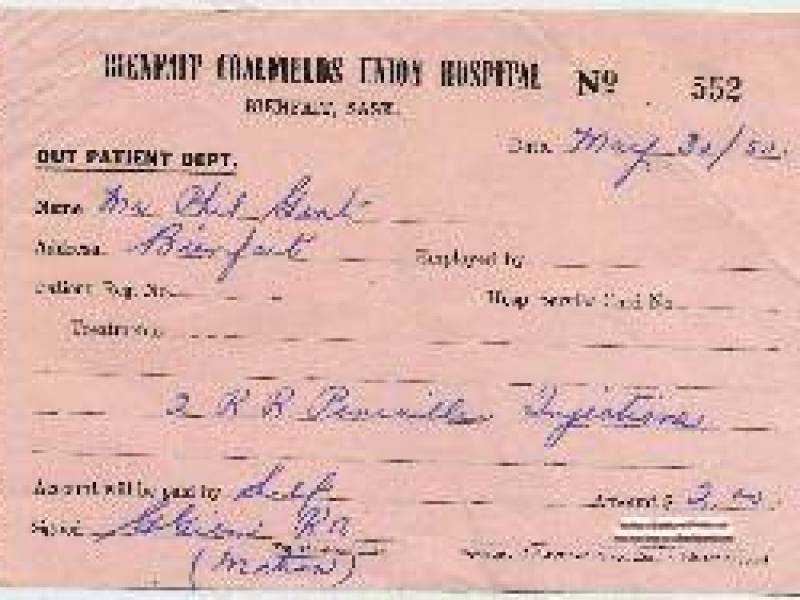 BIENFAIT COALFIELDS UNION HOSPITAL Nº 552
BIENFAIT, SASK.
Date May 30/50
OUT PATIENT DEPT.
Name Mr Phil
Address Bienfait Employed by
Patient Reg. No. Hosp. Service Card No.
Treatment
2 Penicillin Injections
Account will be paid by Self Amount $ 2.00
Signed RN
(Matron)